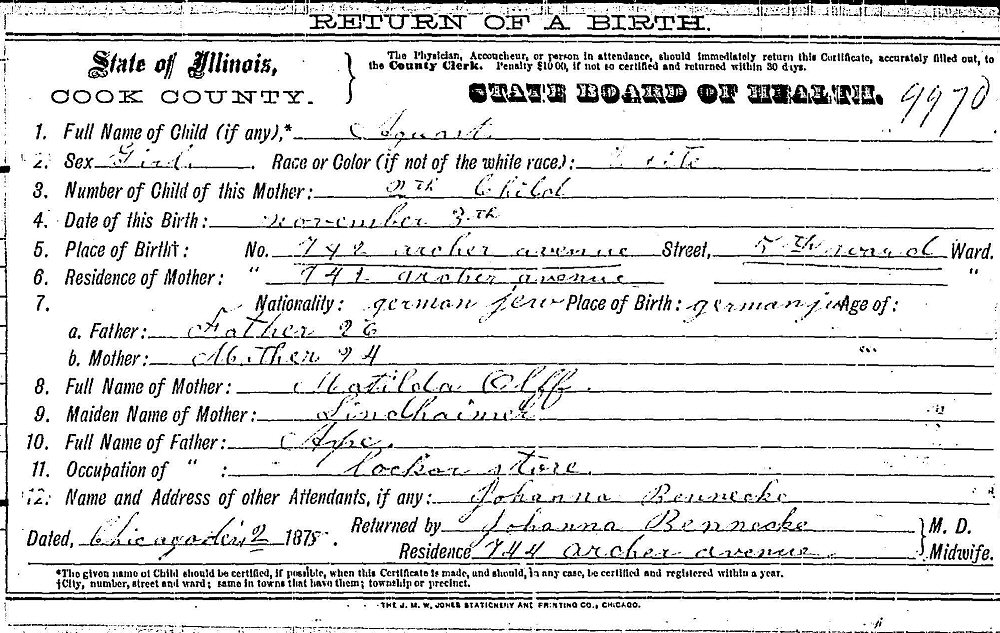 RETURN OF A BIRTH.
State of Illinois,
COOK COUNTY.
The Physician, Accoucheur, or person in attendance, should immediately return this Certificate, accurately filled out, to
the County Clerk. Penalty $10 00, if not so certified and returned within 30 days.
STATE BOARD OF HEALTH.
9970
1. Full Name of Child (if any),*
2. Sex Race or Color (if not of the white race):
3. Number of Child of this Mother: Child
4. Date of this Birth: november 3th
5. Place of Birth†: No. 742 archer avenue Street, 5th ward Ward.
6. Residence of Mother: " 742 archer avenue "
7. Nationality: german jew Place of Birth: german Age of:
a. Father: Father 26
b. Mother: Mother 24
8. Full Name of Mother: Matilda
9. Maiden Name of Mother: Lindhaimer
10. Full Name of Father:
11. Occupation of " : store
12. Name and Address of other Attendants, if any: Johanna Bennecke
Returned by Johanna Bennecke M. D.
Dated, 1878.
Residence 744 archer avenue Midwife.
*The given name of Child should be certified, if possible, when this Certificate is made, and should, in any case, be certified and registered within a year.
†City, number, street and ward; same in towns that have them; township or precinct.
THE J. M. W. JONES STATIONERY AND PRINTING CO., CHICAGO.